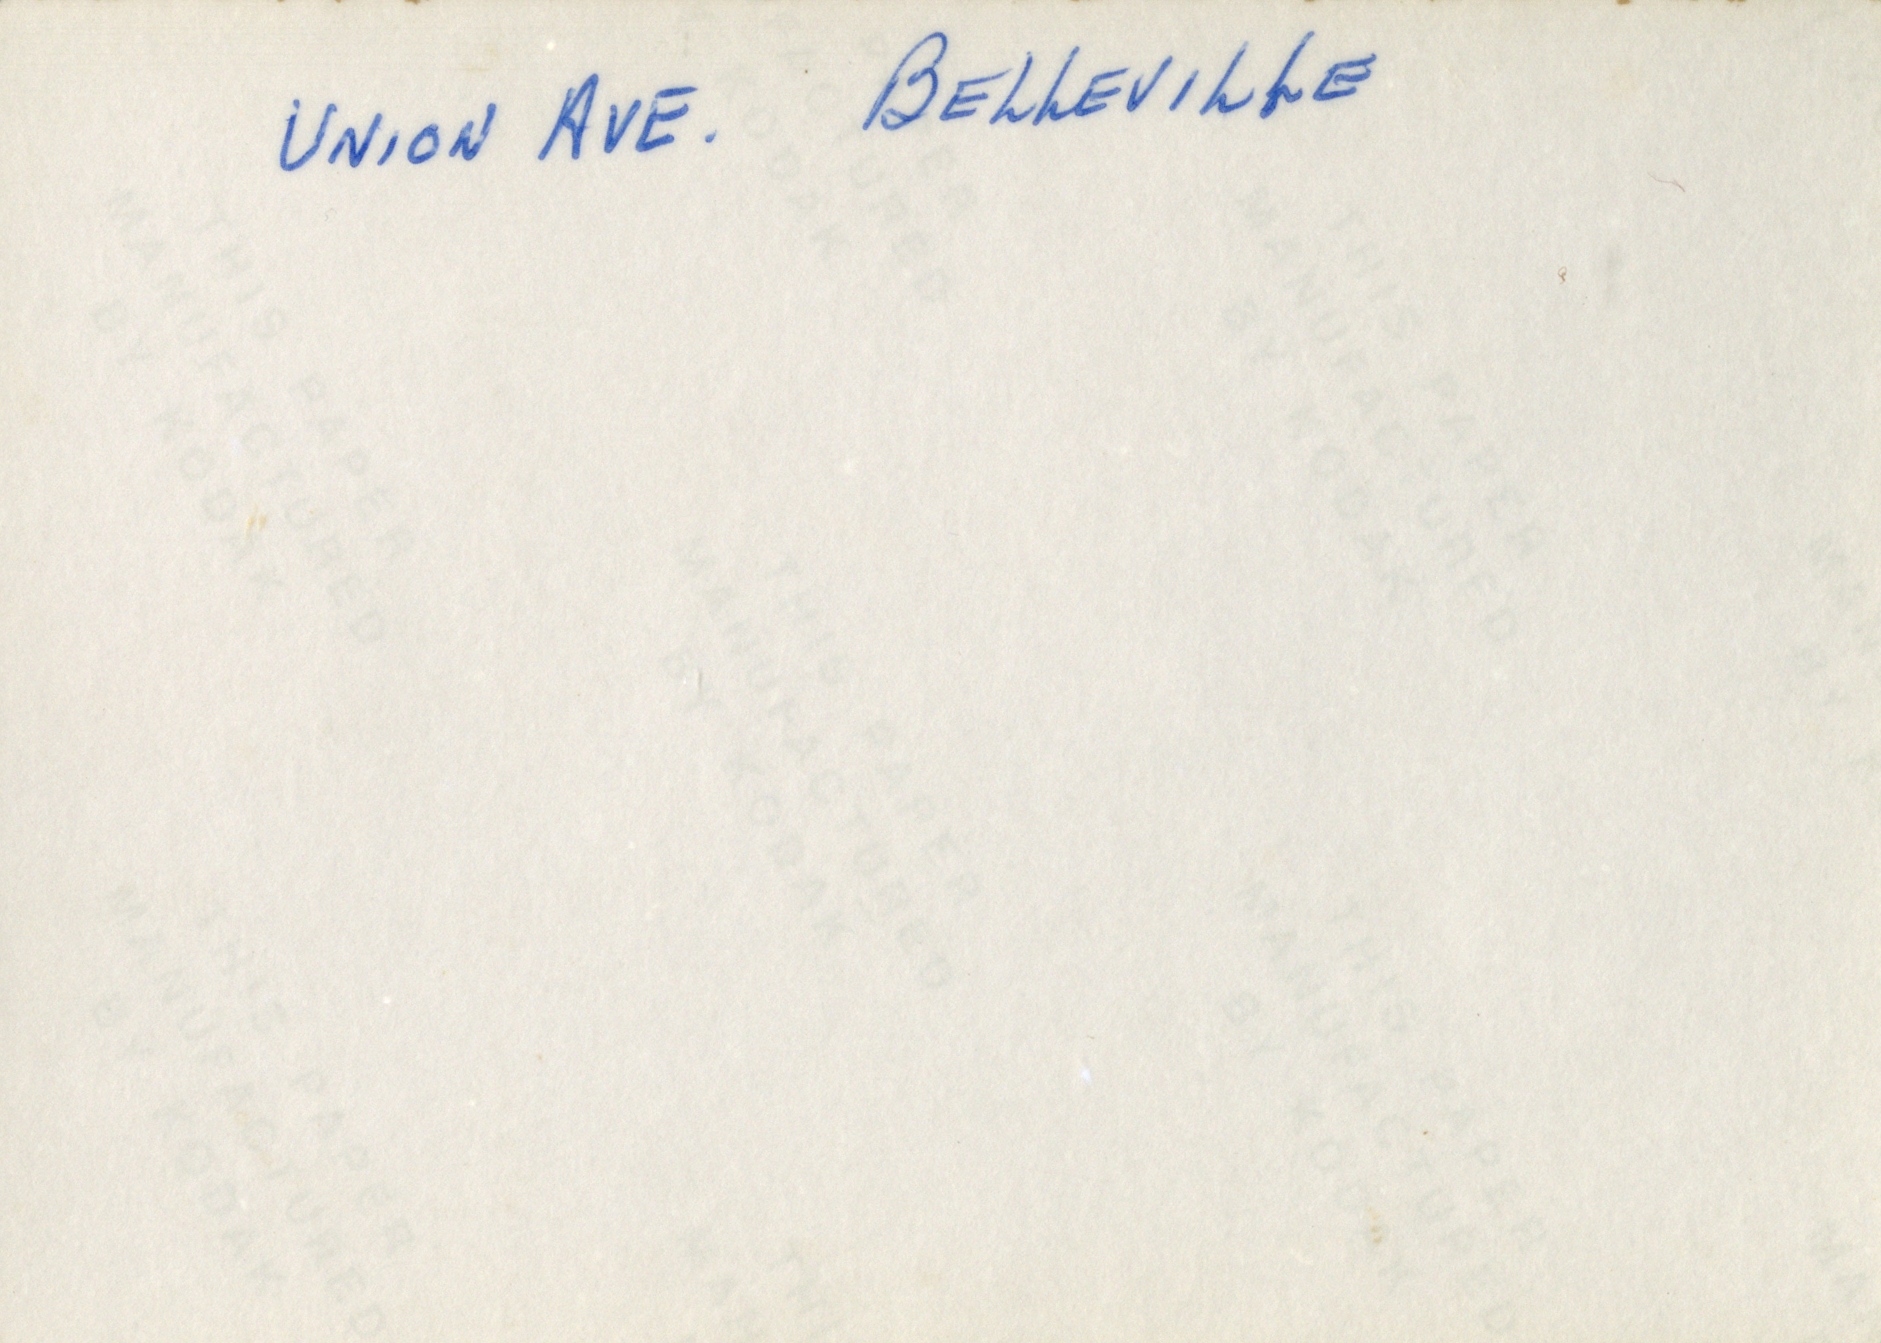 UNION AVE. BELLEVILLE
THIS PAPER
MANUFACTURED
BY KODAK
PAPER
MANUFACTURED
KODAK
THIS PAPER
MANUFACTURED
BY KODAK
THIS PAPER
MANUFACTURED
BY KODAK
THIS PAPER
MANUFACTURED
BY KODAK
THIS PAPER
MANUFACTURED
BY KODAK